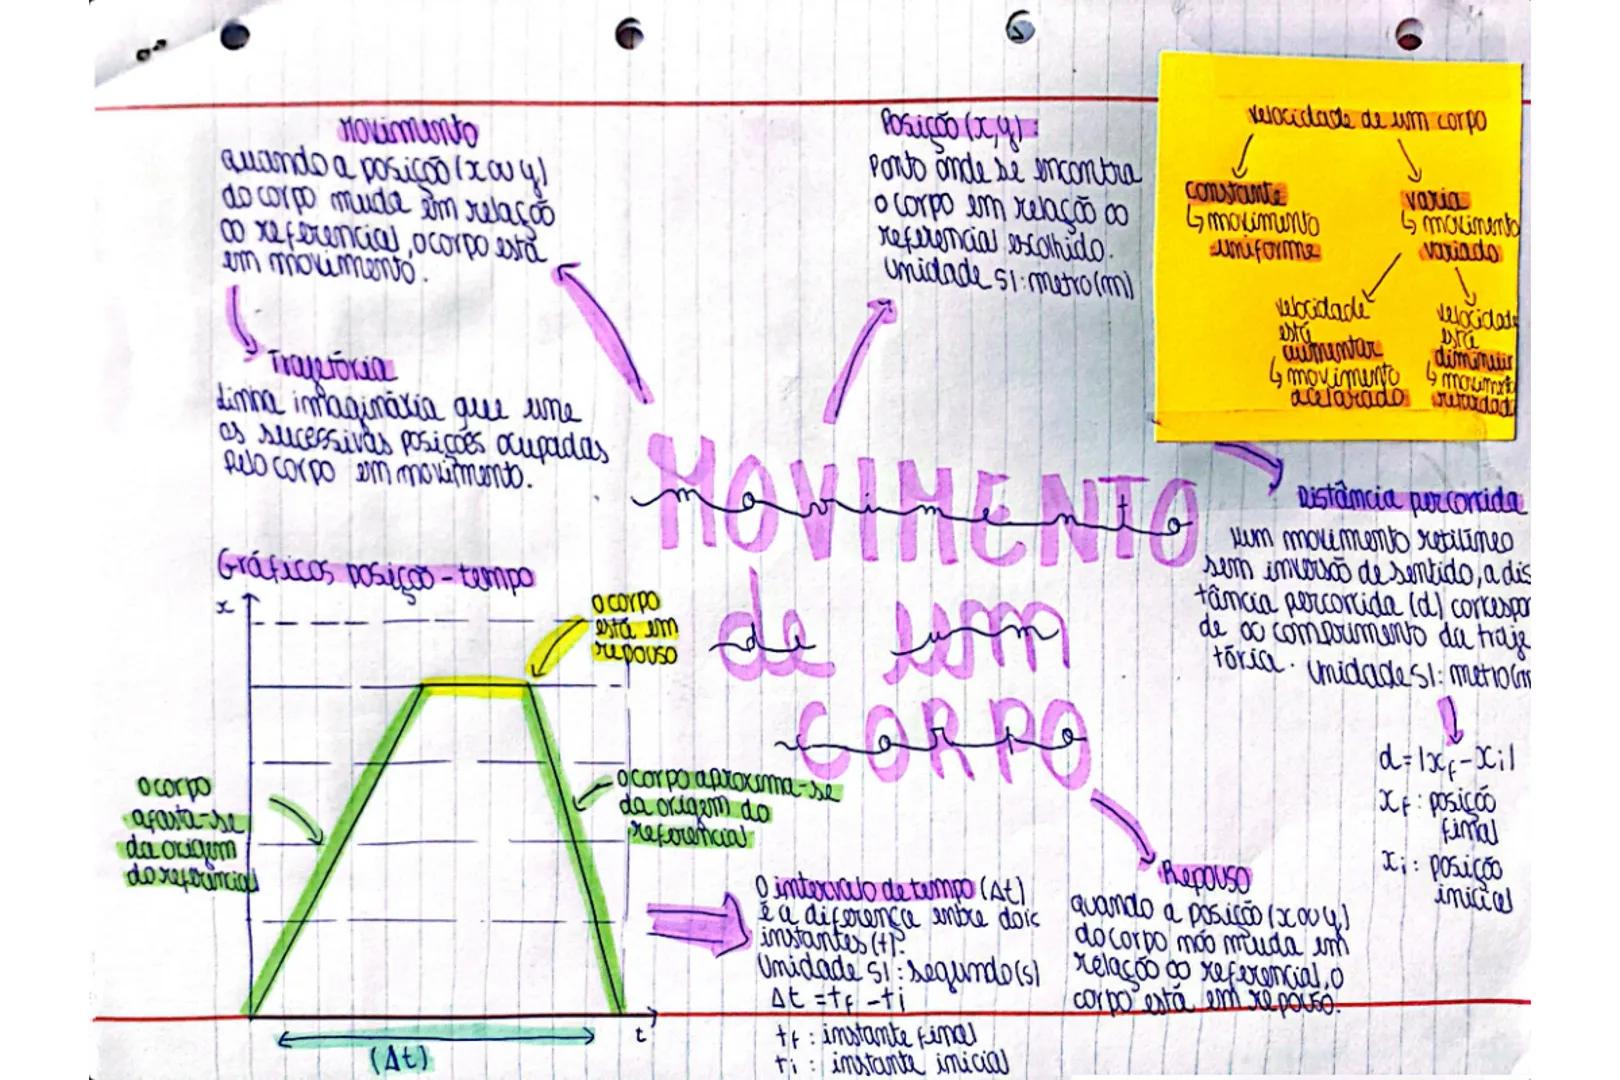 Movimento
quando a posição (x ou y)
do corpo muda em relação
ao referencial, o corpo está
em movimento.
Trajetória
Linha imaginária que une
as sucessivas posições ocupadas
pelo corpo em movimento.
Posição (x,y):
Ponto onde se encontra
o corpo em relação ao
referencial escolhido.
Unidade SI: metro (m)
velocidade de um corpo
constante
↳ movimento
uniforme
varia
↳ movimento
variado
velocidade
está
aumentar
↳ movimento
acelarado
velocidade
está
diminuir
↳ movimento
retardad
MOVIMENTO
movimento
de um
de um
CORPO
corpo
Distância percorrida
Num movimento retilíneo
sem inversão de sentido, a dis
tância percorrida (d) correspon
de ao comprimento da traje
tória. Unidade SI: metro (m
d=|xf-xi|
xf: posição
final
xi: posição
inicial
Gráficos posição-tempo
x
o corpo
está em
repouso
o corpo
afasta-se
da origem
do referencial
o corpo aproxima-se
da origem do
referencial
t
(Δt)
O intervalo de tempo (Δt)
é a diferença entre dois
instantes (t).
Unidade SI: segundo (s)
Δt = tf - ti
tf: instante final
ti: instante inicial
Repouso
quando a posição (x ou y)
do corpo não muda em
relação ao referencial, o
corpo está em repouso.